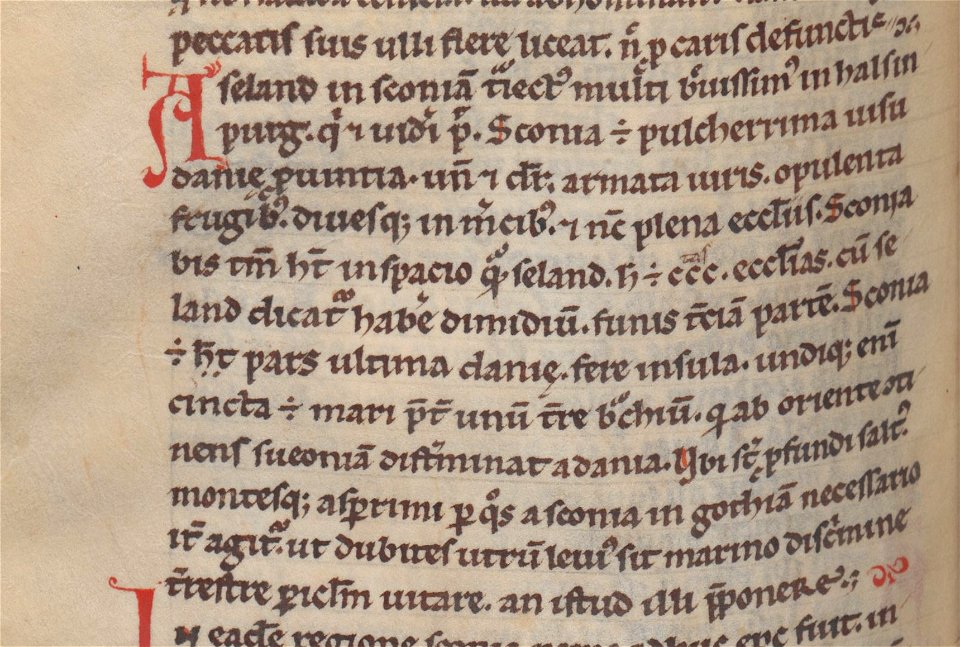 peccatis suis ulli flere liceat. n̄ p caris defunctis
A seland in sconiā t̄iect' multi b̄uissim' in halsin
purg. q̄ ⁊ uidi p̄. Sconia ÷ pulcherrima uisu
danię ꝓuintia. un̄ ⁊ dr̄. armata uiris. opulenta
frugib'. diuesq; in m̄cib'. ⁊ nc̄ plena eccl̄iis. Sconia
bis tm̄ ht̄ in spacio qͦ seland. h ÷ ccc. eccl̄ias. cū se
land dicatᷣ habe dimidiū. funis t̄ciā partē. Sconia
÷ h̄t pars ultima danię. fere insula. undiq; enī
cincta ÷ mari p̄t unū t̄re bͣchiū. q ab oriente ↄti
nens sueoniā dist̄minat a dania. Vbi st̄ ꝓfundi salt'
montesq; asp̄rimi ꝑ qͦs a sconia in gothiā necessario
it̄ agitᷣ. ut dubites utrū leui' sit marino disc̄mine
t̄restre ꝑicl̄m uitare. an istud illi p̄ponere
In eadē regione